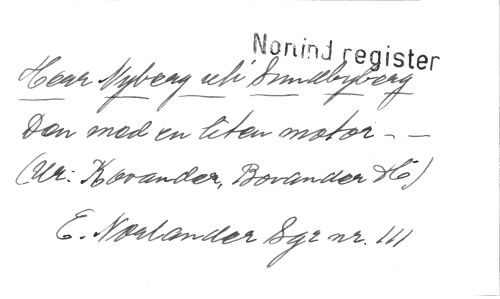 Nonind register
Herr Nyberg uti Sundbyberg
Den med en liten motor - -
(Ur: Kovander, Bovander Hö)
E. Norlander Sgr nr. 111